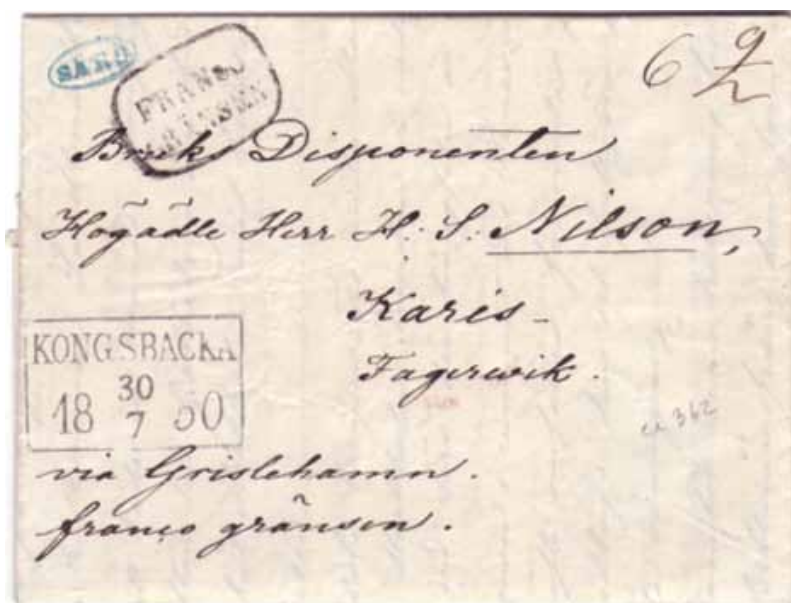 SÄRÖ
FRANCO
GRÄNSEN
6
Bruks Disponenten
Högädle Herr H. S. Nilson,
Karis
Fagerwik.
KONGSBACKA
30
18 7 50
via Grislehamn.
franco gränsen.